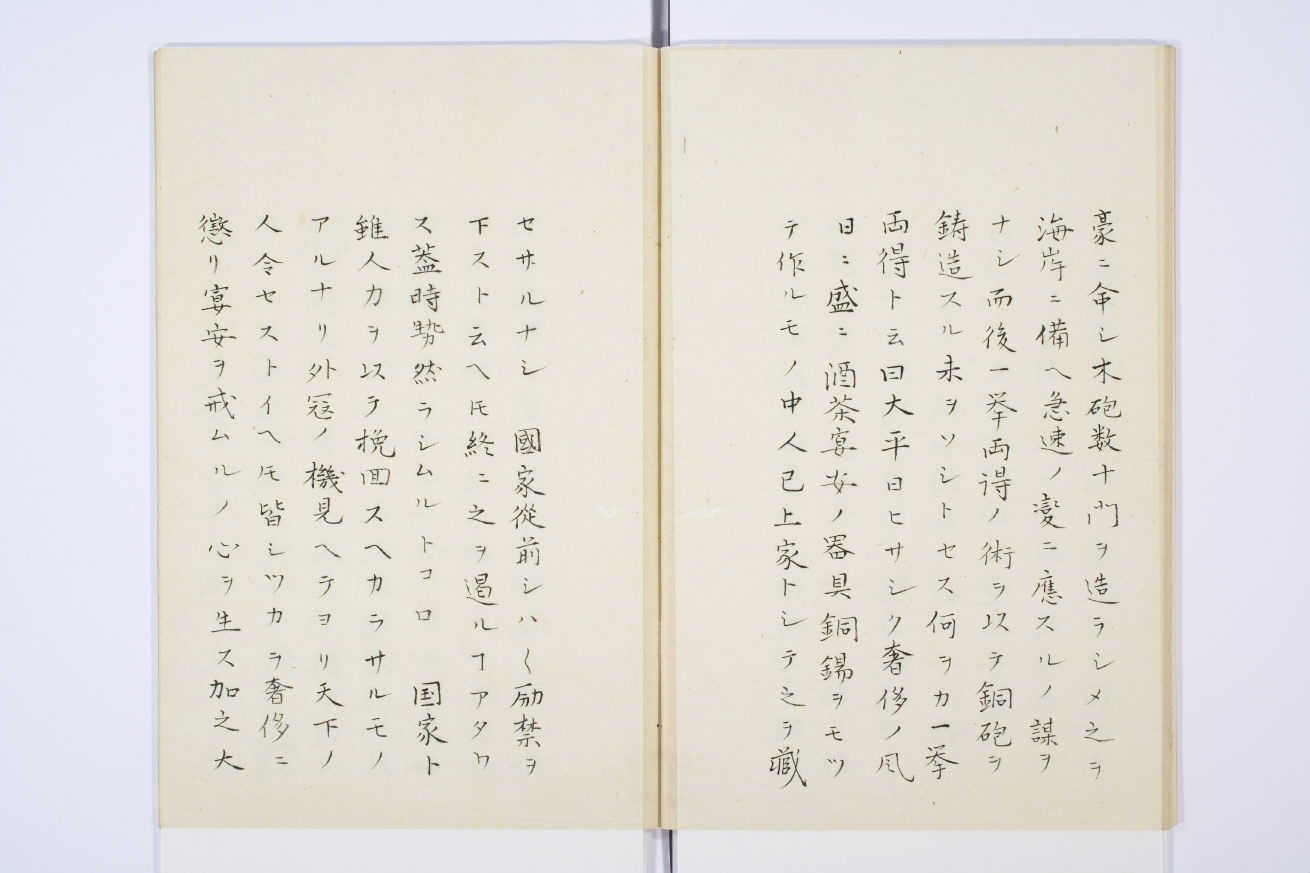 豪ニ命シ木砲数十門ヲ造ラシメ之ヲ
海岸ニ備ヘ急速ノ変ニ應スルノ謀ヲ
ナシ而後一挙両得ノ術ヲ以テ銅砲ヲ
鋳造スル未ヲソシトセス何ヲカ一挙
両得ト云曰大平日ヒサシク奢侈ノ風
日ニ盛ニ酒茶宴安ノ器具銅錫ヲモツ
テ作ルモノ中人已上家トシテ之ヲ蔵
セサルナシ 國家従前シハ〱励禁ヲ
下スト云ヘ𪜈終ニ之ヲ遏ルヿアタワ
ス蓋時勢然ラシムルトコロ 国家ト
雖人力ヲ以テ挽回スヘカラサルモノ
アルナリ外冦ノ機見ヘテヨリ天下ノ
人令セストイヘ𪜈皆シツカラ奢侈ニ
懲リ宴安ヲ戒ムルノ心ヲ生ス加之大